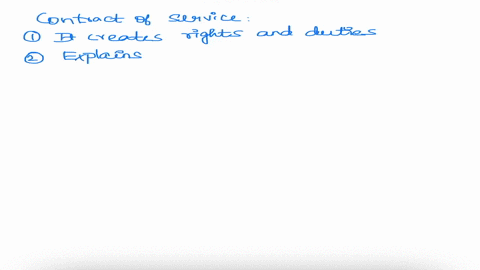 Contract of service:
① It creates rights and duties
② Explains